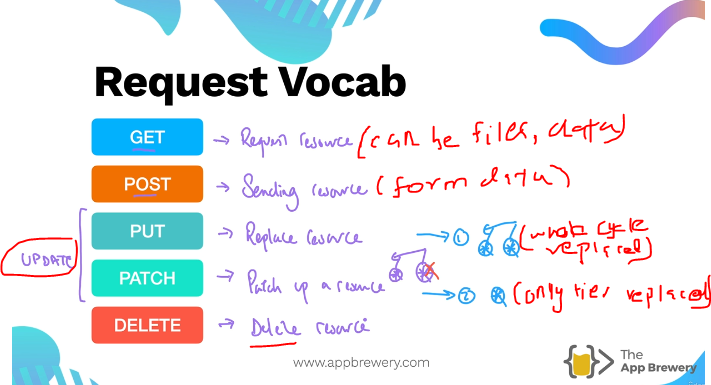 Request Vocab
GET → Request resource (can be files, data)
POST → Sending resource (form data)
PUT → Replace resource → ① (whole cycle replaced)
UPDATE
PATCH → Patch up a resource → ② (only tier replaced)
DELETE → Delete resource
www.appbrewery.com
The
App Brewery